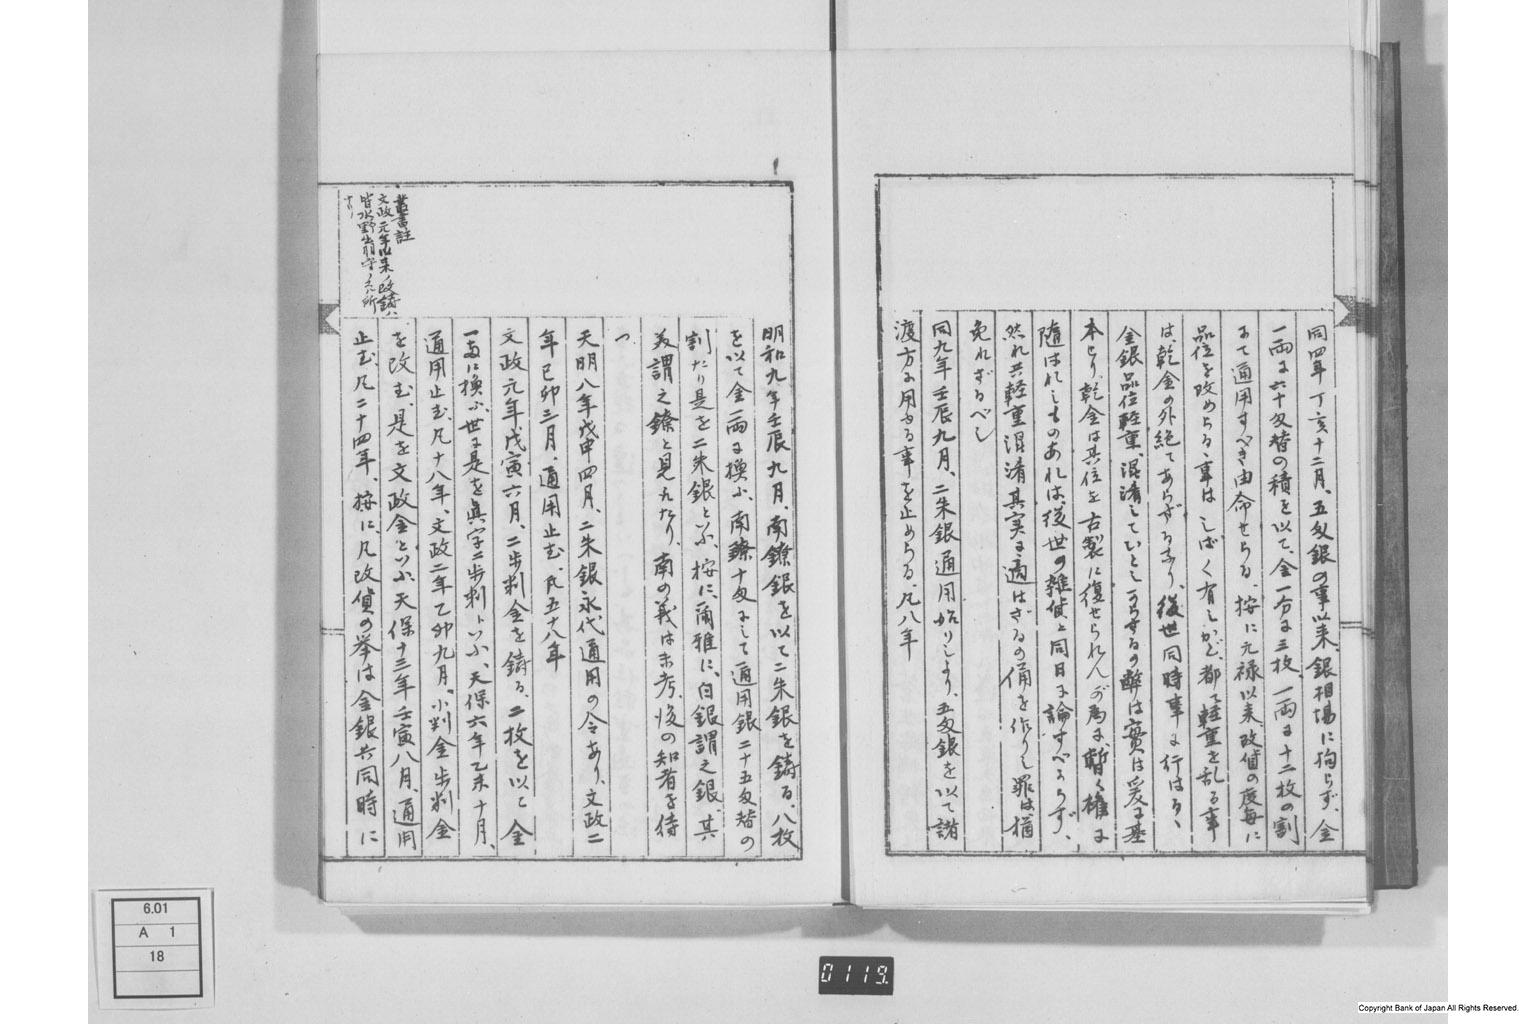 同四年丁亥十二月、五匁銀の事以来、銀相場に拘らず、金
一両に六十匁替の積を以て、金一分に三枚、一両に十二枚の割
にて通用すべき由命せらる、按に元禄以来、改貨の度毎に
品位を改めらるゝ事は、しばしば有しかど、都て軽重を乱る事
は、乾金の外絶てあらざるなり、後世同時事に行はるゝ
金銀品位軽重、混淆していとし からざるの弊は実は爰に基
本せり、乾金は其位を古製に復せられんが為に、暫く権に
随はれしものあれは、後世の雑貨と同日に論すべからず、
然れ共軽重混淆其実に適はざるの俑を作りし罪は猶
免れざるべし
同九年壬辰九月、二朱銀通用始りしより、五匁銀を以て諸
渡方に用ゆる事を止めらる、凡八年
明和九年壬辰九月、南鐐銀を以て二朱銀を鋳る、八枚
を以て金一両に換ふ、南鐐十匁にして通用銀二十五匁替の
割たり是を二朱銀と云ふ、按に、爾雅に、白銀謂之銀、其
美謂之鐐と見えたり、南の義は未考、後の知者を待
つ
天明八年戊申四月、二朱銀永代通用の令あり、文政二
年己卯三月、通用止む、凡五十八年
文政元年戊寅六月、二歩判金を鋳る、二枚を以て金
一両に換ふ、世に是を真字二歩判ト云ふ、天保六年乙未十月、
通用止む、凡十八年、文政二年乙卯九月、小判金歩判金
を改む、是を文政金と云ふ、天保十三年壬寅八月、通用
止む、凡二十四年、按に、凡改貨の挙は金銀共同時に
叢書註
文政元年以来ノ改鋳ハ
皆水野出羽守ノ 所
ナリ
6.01
A 1
18
0119.
Copyright Bank of Japan All Rights Reserved.